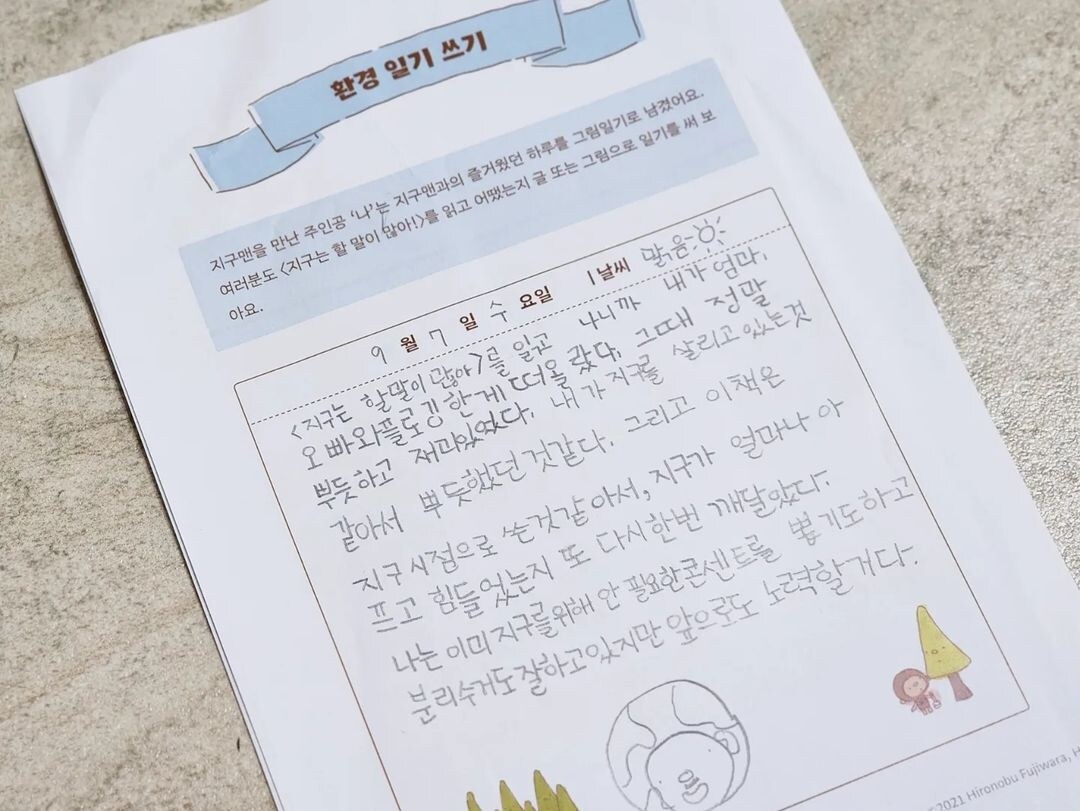 환경 일기 쓰기
지구맨을 만난 주인공 '나'는 지구맨과의 즐거웠던 하루를 그림일기로 남겼어요.
여러분도 <지구는 할 말이 많아!>를 읽고 어땠는지 글 또는 그림으로 일기를 써 보
아요.
9 월 7 일 수 요일 | 날씨 맑음
<지구는 할말이 많아>를 읽고 나니까 내가 엄마,
오빠와플로깅한게 떠올랐다. 그때 정말
뿌듯하고 재미있었다. 내가 지구를 살리고 있는것
같아서 뿌듯했던것같다. 그리고 이책은
지구시점으로 쓴것같아서, 지구가 얼마나 아
프고 힘들었는지 또 다시한번 깨달았다.
나는 이미 지구를위해 안 필요한콘센트를 뽑기도하고
분리수거도잘하고있지만 앞으로도 노력할거다.
2021 Hironobu Fujiwara, H